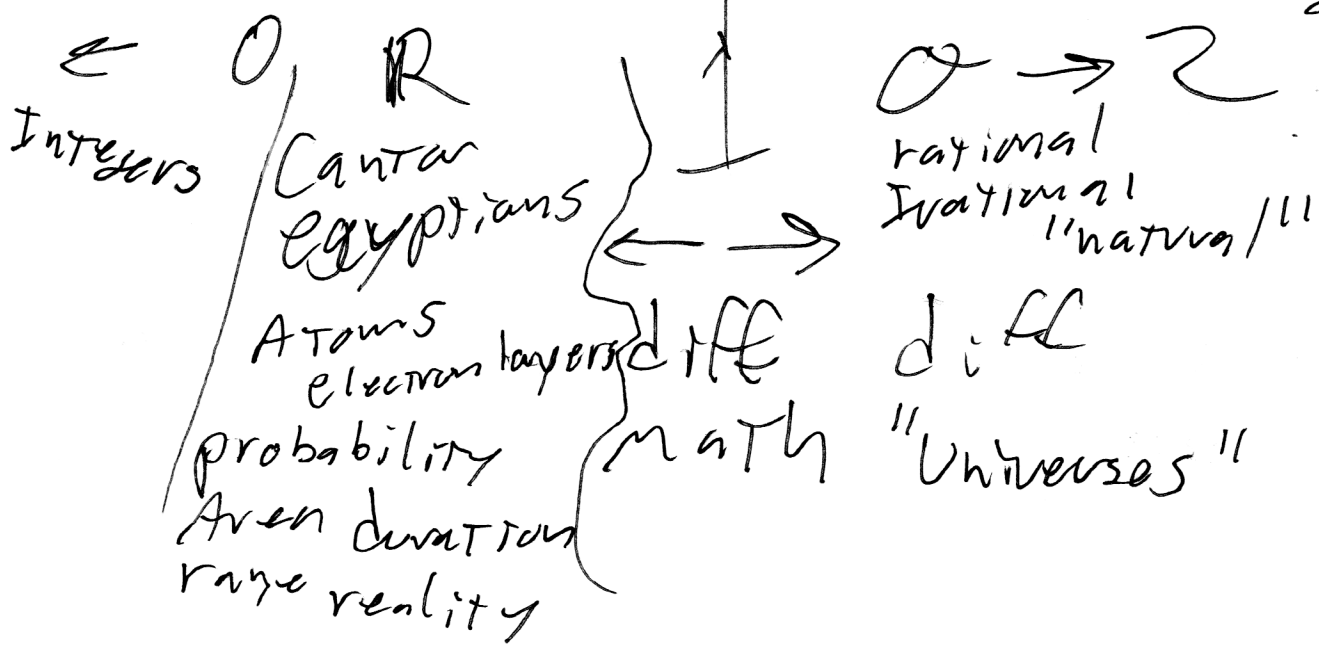 ← 0 ℝ 1 0 → 2
Integers
Cantor
egyptians
Atoms
electron layers
probability
Area duration
range reality
← →
diff
math
rational
Irational
"natural"
diff
"Universes"